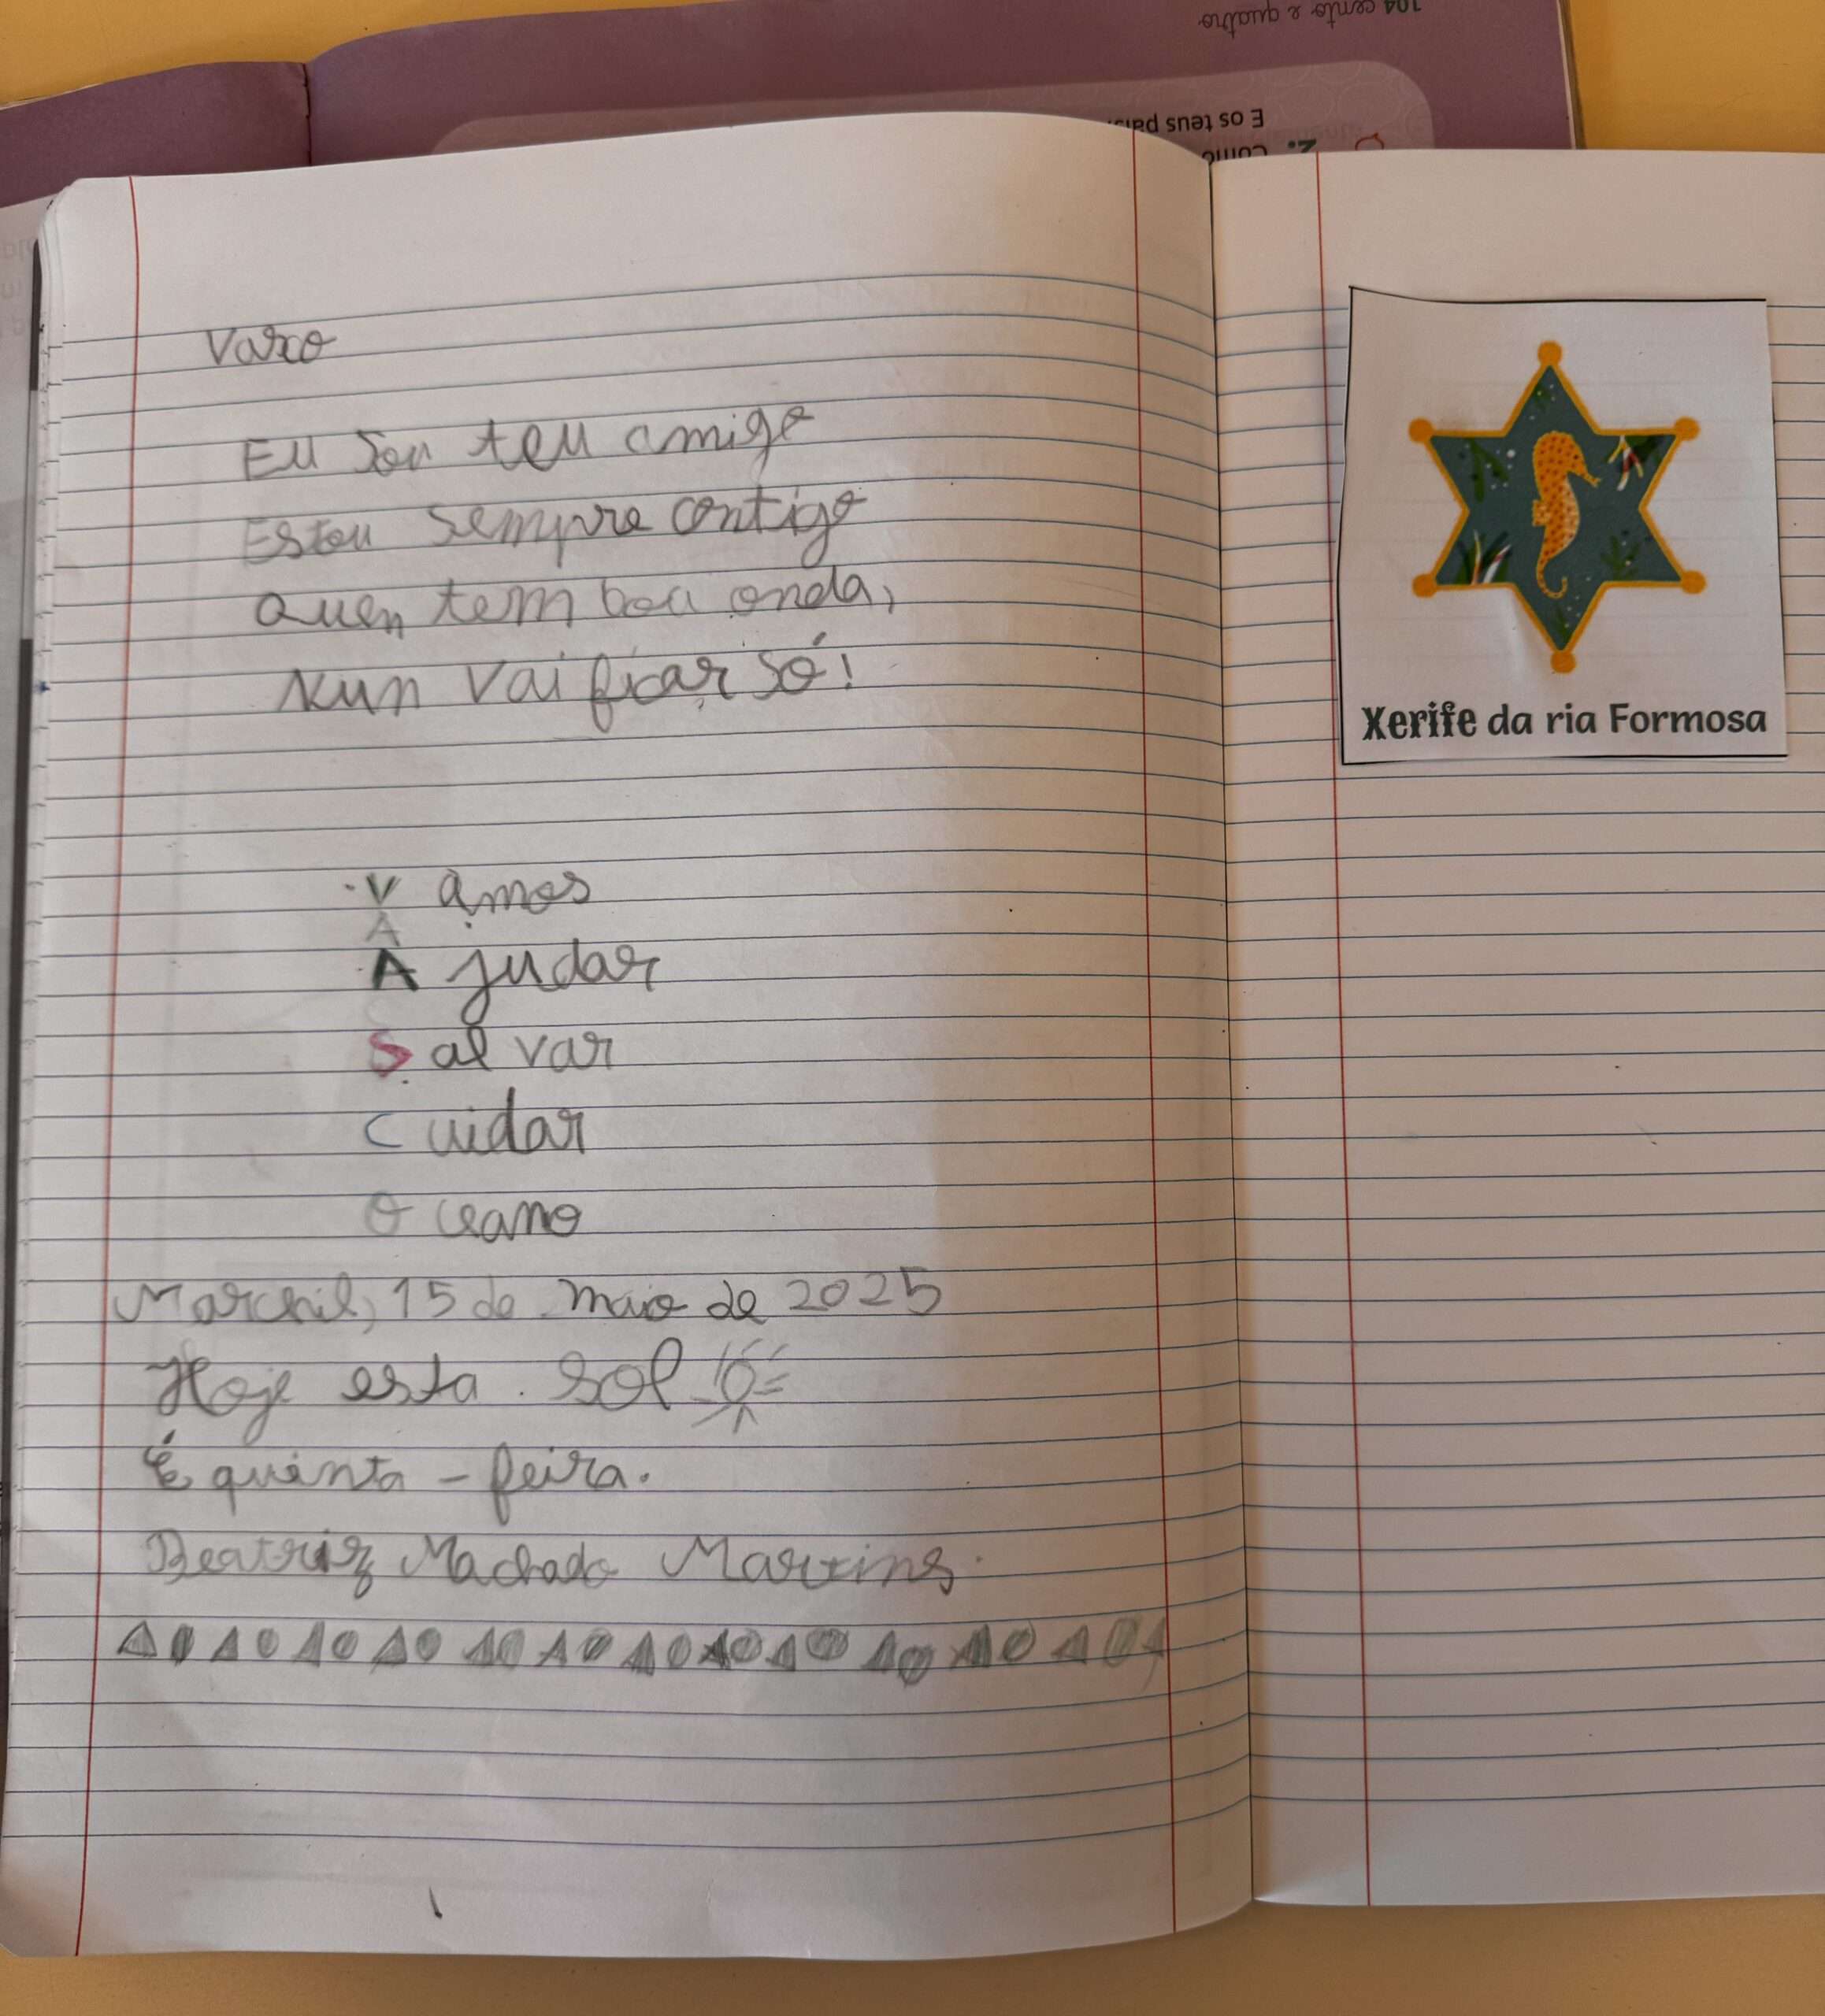 104 cento e quatro
E os teus pais
2. Como
Vasco
Eu sou teu amigo
Estou sempre contigo
Quen tem boa onda,
Nun vai ficar só!
V amos
A
A judar
S al var
C uidar
O ceano
Marchil, 15 de maio de 2025
Hoje esta sol
É quinta - feira.
Beatriz Machado Martins.
Xerife da ria Formosa